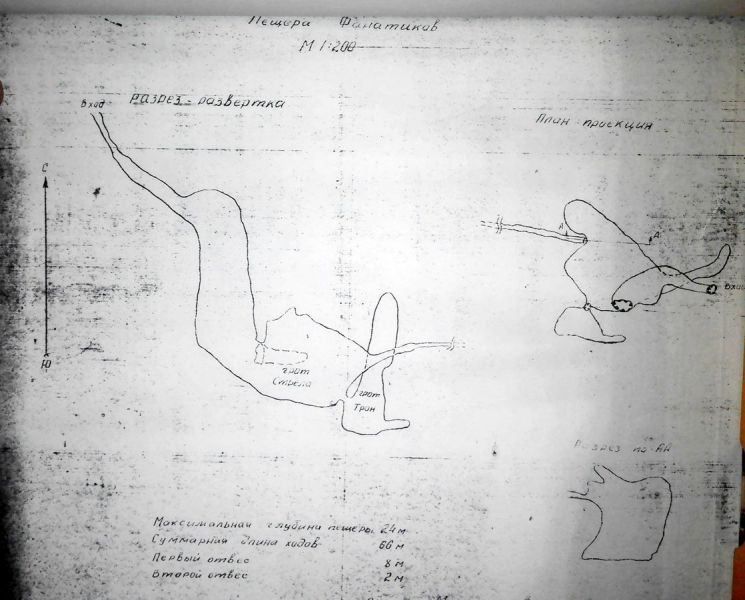 Пещера Фанатиков
М 1:200
Разрез - развертка
Вход
План - проекция
С
А
А
Вход
Ю
грот
Стрела
грот
Трон
Разрез по АА
Максимальная глубина пещеры 24 м
Суммарная длина ходов 66 м
Первый отвес 8 м
Второй отвес 2 м